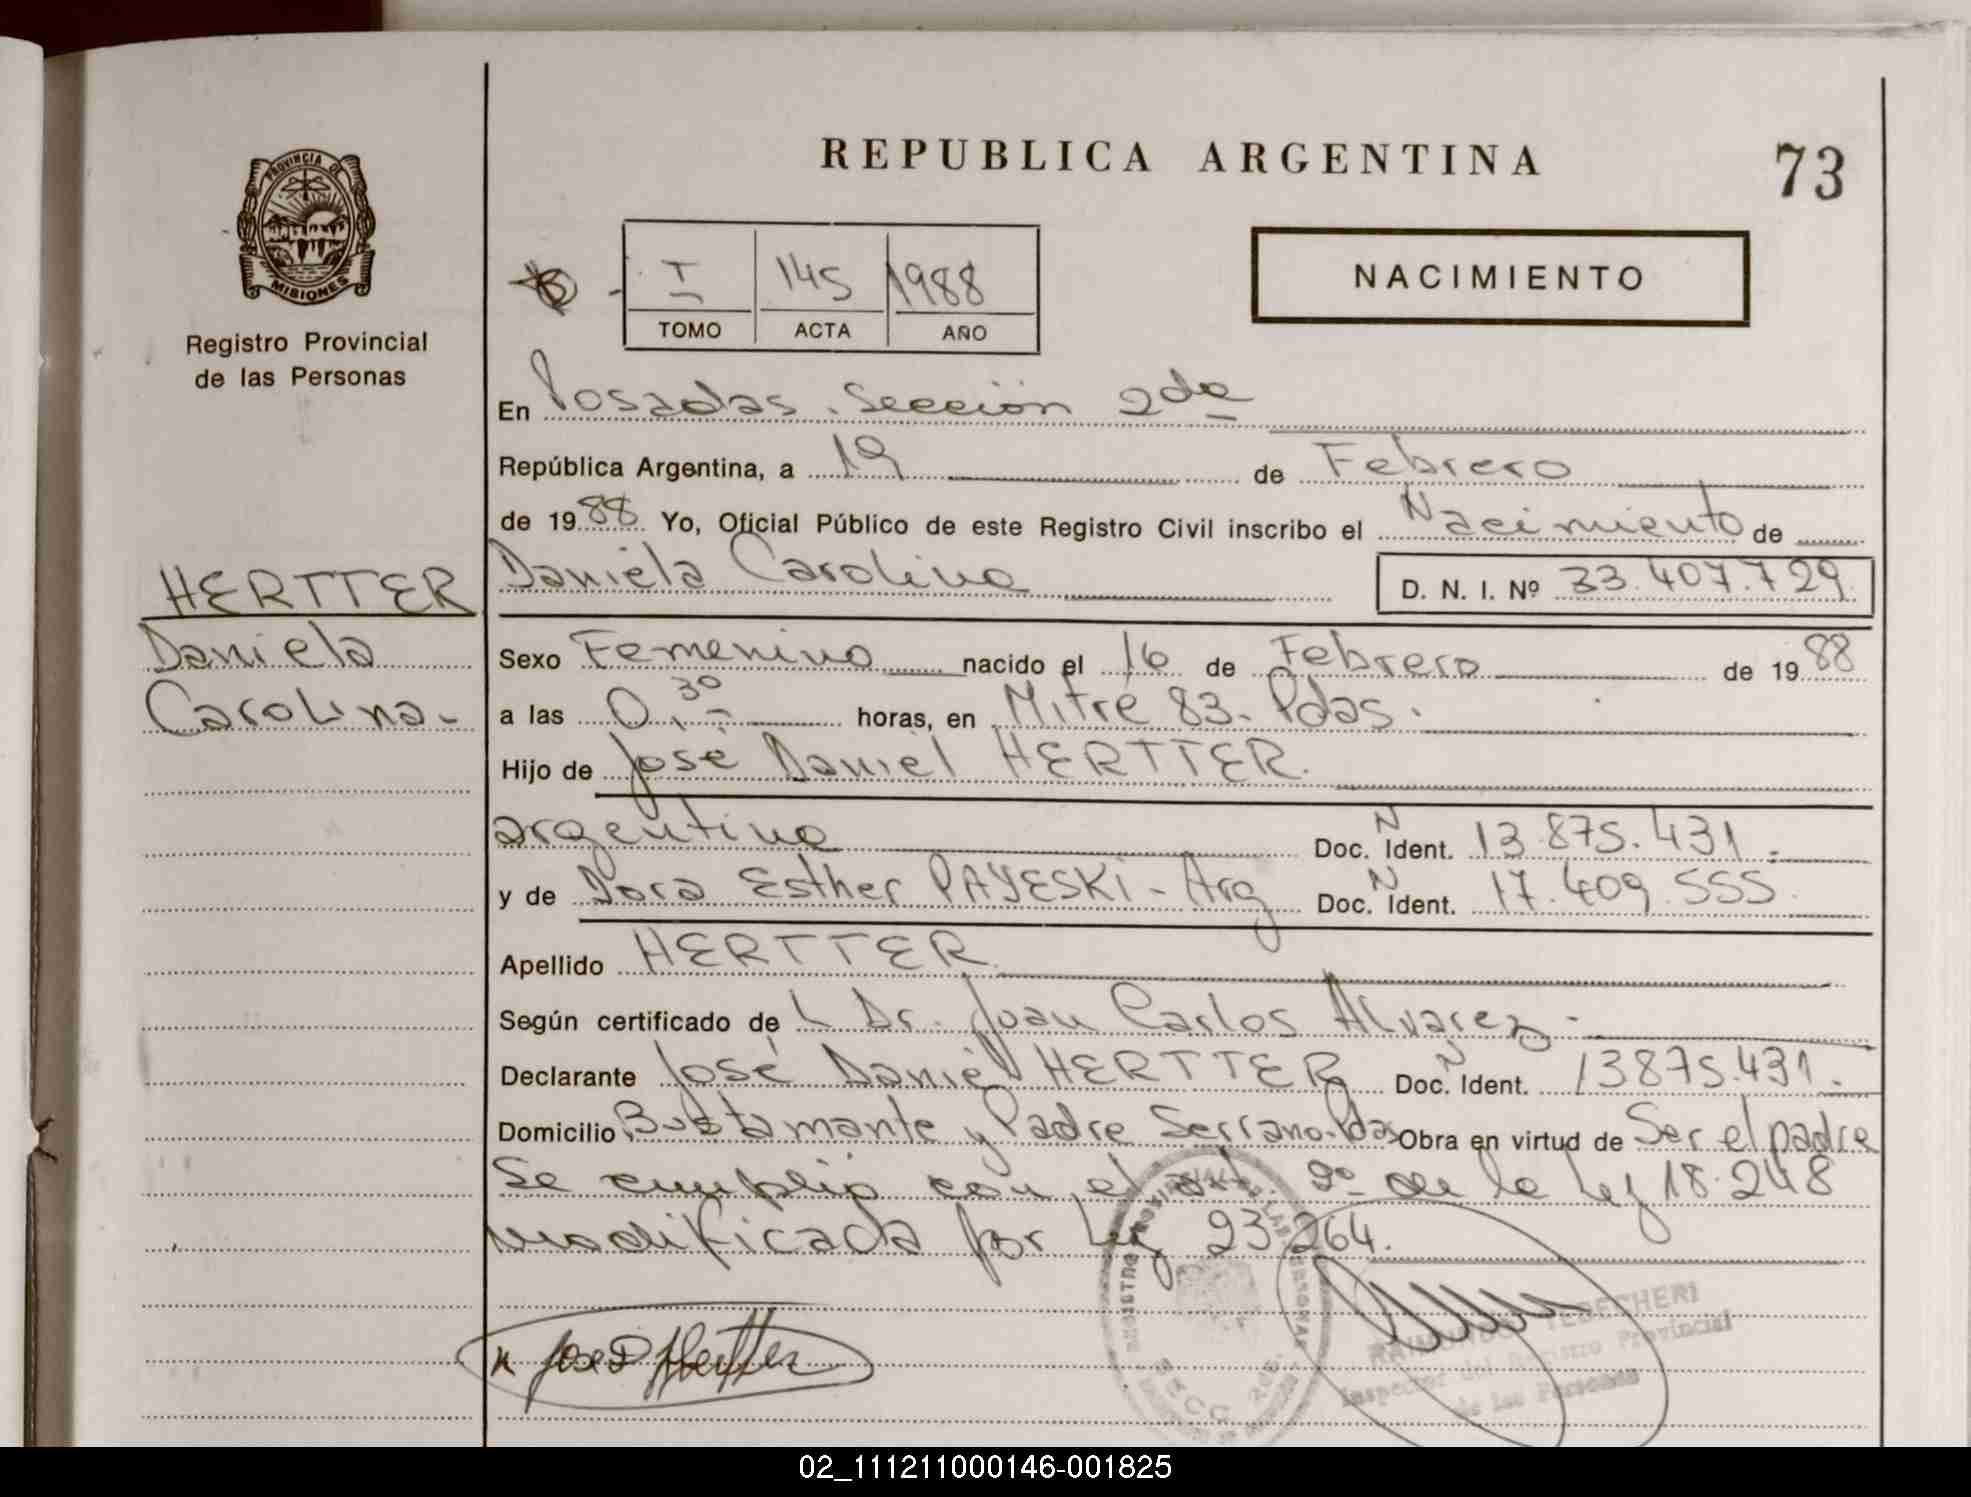 REPUBLICA ARGENTINA
73
PROVINCIA DE
MISIONES
Registro Provincial
de las Personas
I 145 1988
TOMO ACTA AÑO
NACIMIENTO
En Posadas. Sección 2da
República Argentina, a 19 de Febrero
de 1988 Yo, Oficial Público de este Registro Civil inscribo el Nacimiento de
Daniela Carolina D. N. I. Nº 33.407.729.
HERTTER
Daniela
Carolina.-
Sexo Femenino nacido el 16 de Febrero de 1988
a las 0,30 horas, en Mitre 83. Pdas.
Hijo de José Daniel HERTTER.
argentino Doc. N Ident. 13.875.431.-
y de Dora Esther PAYESKI - Arg Doc. N Ident. 17.409.555.
Apellido HERTTER.
Según certificado de L Dr. Joan Carlos Alvarez.-
Declarante José Daniel HERTTER Doc. N Ident. 13875.431.-
Domicilio Bustamante y Padre Serrano-Pdas Obra en virtud de Ser el padre
Se cumplió con el art. 9º de la Ley 18.248
modificada por Ley 23.264.
Jose D Hertter
RAIMUNDO
Inspector del Registro Provincial
de las Personas
SECC. 2da.
02_111211000146-001825